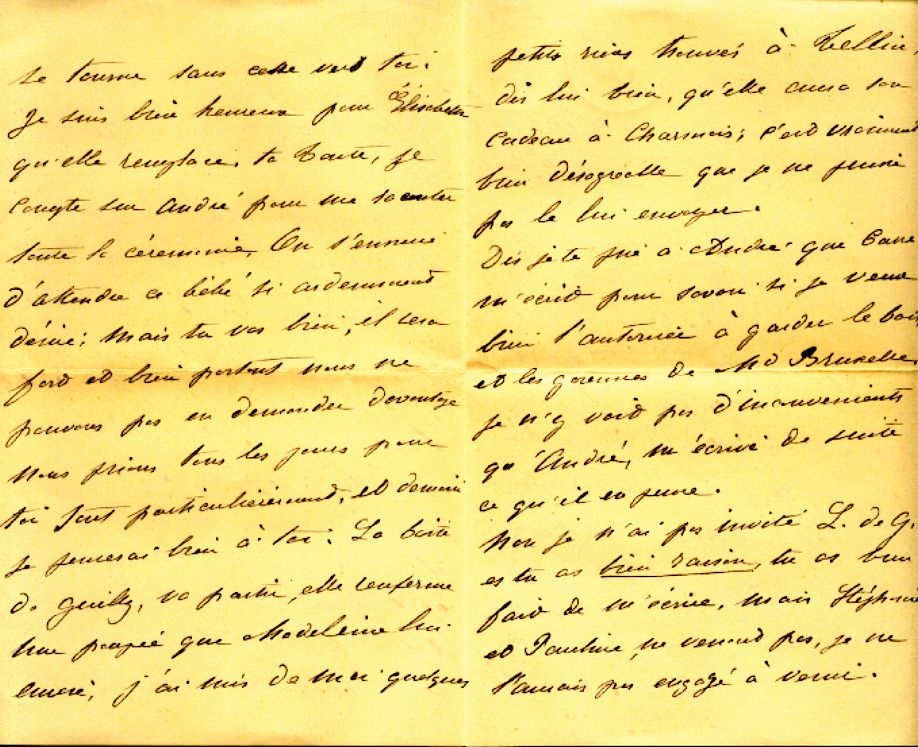 se tourne sans cesse vers toi.
Je suis bien heureux pour Élisabeth
qu'elle remplace, ta Tante, je
compte sur André pour me raconter
toute la cérémonie. On s'ennuie
d'attendre ce bébé si ardemment
désiré; mais tu vas bien, il sera
fort et bien portant nous ne
pouvons pas en demander davantage
nous prions tous les jours pour
toi tout particulièrement, et demain
je penserai bien à toi. La boîte
de Guilly, va partir, elle renferme
une poupée que Madeleine lui
envoie, j'ai mis de moi quelques
petits riens trouvés à Tellin,
dis lui bien, qu'elle aura son
cadeau à Charnois; c'est vraiment
bien désagréable que je ne puisse
pas le lui envoyer.
Dis je te prie à André que
m'écrit pour savoir si je veux
bien l'autoriser à garder le bois
et les garennes de Md Bruxelles,
je n'y voit pas d'inconvénients
qu'André, m'écrive de suite
ce qu'il en pense.
Non je n'ai pas invité L. de G.
et tu as bien raison, tu as bien
fait de m'écrire, mais Stéphanie
et Pauline, ne venant pas, je ne
l'aurais pas engagé à venir.